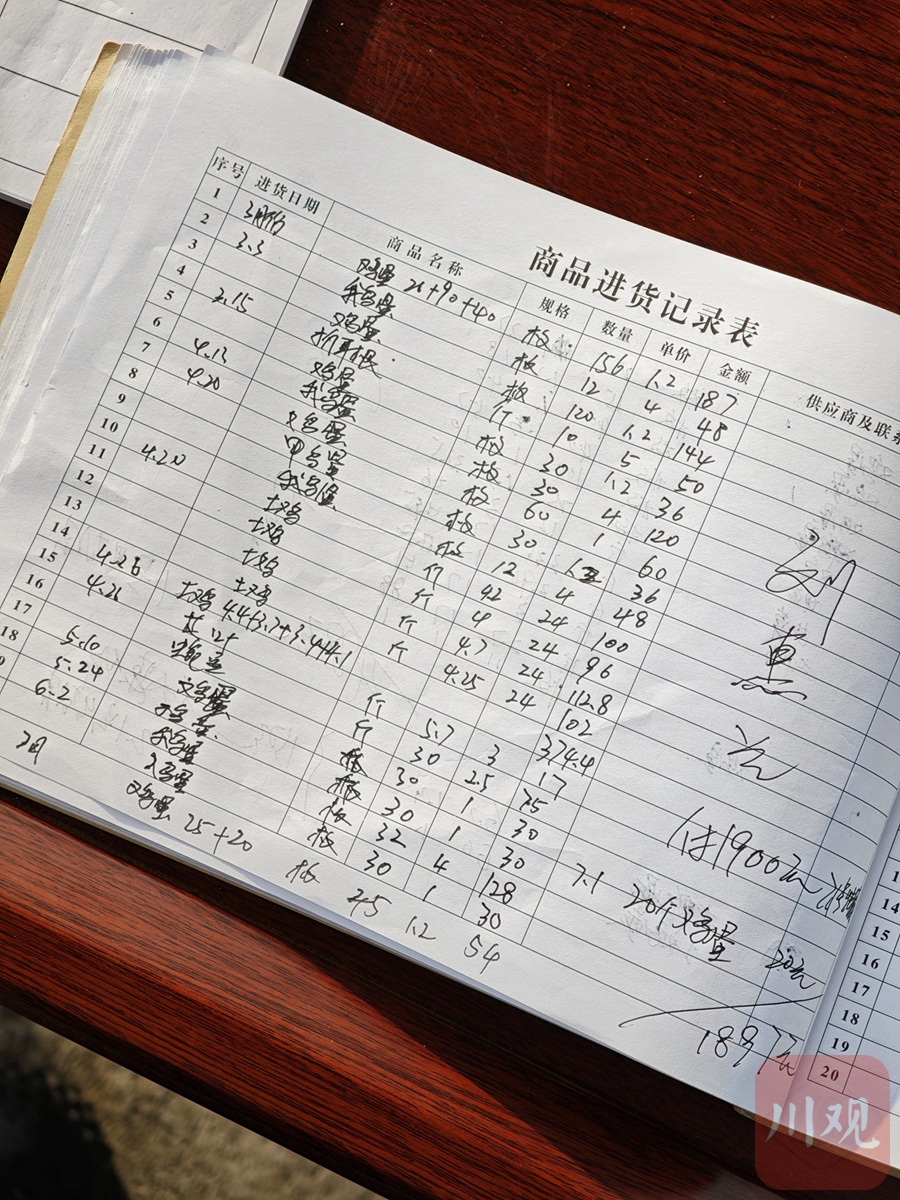 商品进货记录表
序号 进货日期 商品名称 规格 数量 单价 金额 供应商及联系
1 3月份 鸡蛋 21+90+40 板 156 1.2 187
2 3.3 鹅蛋 板 12 4 48
3 鸡蛋 板 120 1.2 144
4 折耳根 斤 10 5 50
5 3.15 鸡蛋 板 30 1.2 36
6 鹅蛋 板 30 4 120
7 4.13 鸡蛋 板 60 1 60
8 4.20 鸭蛋 板 30 36
9 鹅蛋 板 12 4 48
10 土鸡 斤 42 24 100
11 4.20 土鸡 斤 4 24 96
12 土鸡 斤 4.7 24 112.8
13 土鸡 4.4+3.7+3.4+4.1 4.25 24 102
14 4.26 斤 374.4
15 4.26 斤 5.7 3 17
16 板 30 2.5 75
17 5.10 鸡蛋 板 30 1 30
18 5.24 板 30 1 30
6.2 鹅蛋 板 32 4 128
鸡蛋 30 1 30
7月 鸡蛋 25+20 板 45 1.2 54
刘
惠
1付1900元
7.1 20个鸡蛋 20元
1897元
1
14
15
16
17
18
19
20
川观